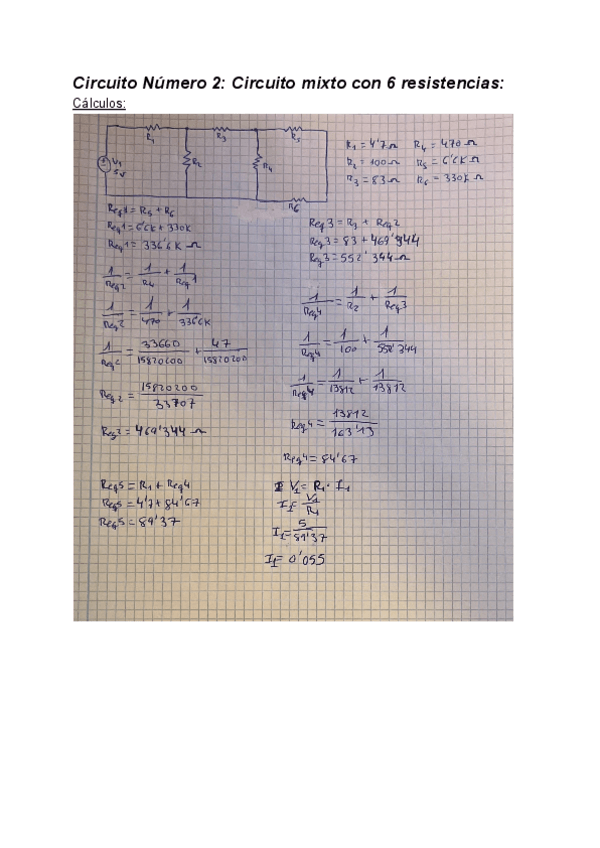 Circuito Número 2: Circuito mixto con 6 resistencias:
Cálculos:
R1 R3 R5
V1 5V R2 R4
R6
R1 = 4'7Ω R4 = 470Ω
R2 = 100Ω R5 = 6'6KΩ
R3 = 83Ω R6 = 330KΩ
Req1 = R5 + R6
Req1 = 6'6K + 330K
Req1 = 336'6K Ω
1/Req2 = 1/R4 + 1/Req1
1/Req2 = 1/470 + 1/336'6K
1/Req2 = 33660/15820200 + 47/15820200
Req2 = 15820200/33707
Req2 = 469'344 Ω
Req3 = R3 + Req2
Req3 = 83 + 469'344
Req3 = 552'344Ω
1/Req4 = 1/R2 + 1/Req3
1/Req4 = 1/100 + 1/552'344
1/Req4 = 1/13812 + 1/13812
Req4 = 13812/163'13
Req4 = 84'67
Req5 = R1 + Req4
Req5 = 4'7 + 84'67
Req5 = 89'37
V1 = R1 · I1
I1 = V1/R1
I1 = 5/89'37
I1 = 0'055